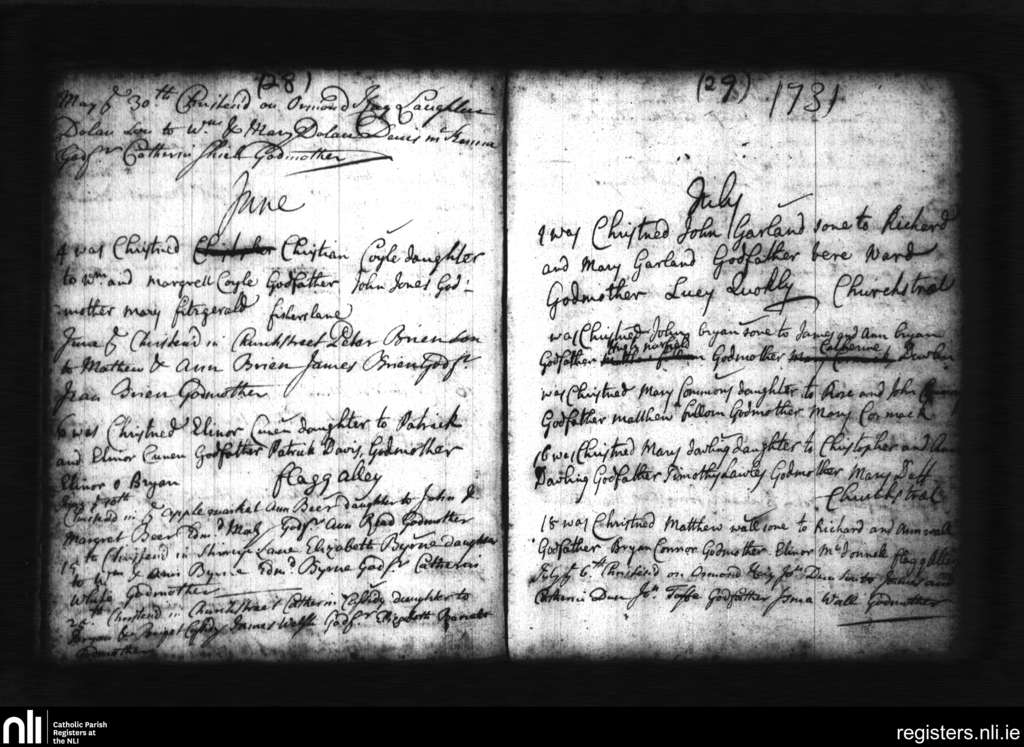 (28)
May ye 30th Christend on Ormond Key Laughlin
Dolan Son to Wm & Mary Dolan Denis
Godfr Catherin Shiel Godmother
June
4 was Christned Christian Coyle daughter
to Wm and margrett Coyle Godfather John Jones God:
mother mary fitzgerald fisherslane
June ye Christend in Churchstreet Peter Brien Son
to Mathew & Ann Brien James Brien Godfr
Jean Brien Godmother
6 was Christned Elinor Cunen daughter to Patrick
and Elinor Cunen Godfather Patrick Davis, Godmother
Elinor o Bryan flagg alley
Christend in ye apple market Ann Beer daughter to John &
Margret Beer Edmd Godfr Ann Godmother
15th Christend in Lane Elizabeth Byrne daughter
to Wm & Ann Byrne Edmd Byrne Godfr Catherin
Godmother
Christend in Churchstreet Catherin Cassidy daughter to
& Bridget Cassidy James Walsh Godfr Elizabeth
Godmother
(29) 1731
July
9 was Christned John Garland sone to Richard
and Mary Garland Godfather bere Ward
Godmother Lucy Quokly Churchstreat
was Christned John bryan sone to James and Ann bryan
Godfather Hugh Godmother Catherine
was Christned Mary Commons daughter to Rose and John
Godfather matthew Godmother Mary Cormack
16 was Christned Mary darling daughter to Christopher and Ann
Darling Godfather Timothy Lawles Godmother Mary Taff
Churchstreat
18 was Christned Matthew wall sone to Richard and Ann wall
Godfather Bryan Connor Godmother Elinor McDonnell flagg Alley
July ye 6th Christend on Ormond Key Jon Dunn Son to James and
Catherin Dunn Jon Godfather Wall Godmother
nli
Catholic Parish
Registers at
the NLI
registers.nli.ie